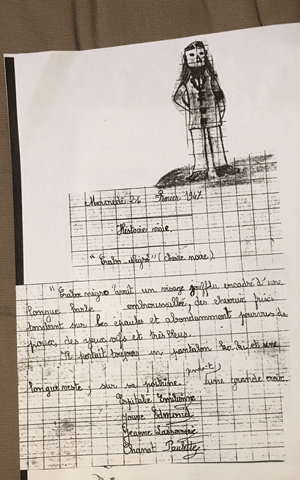 Mercredi 26 Février 1947.
Histoire vraie.
"Trabo négro" (
"Trabo négro" avait un visage joufflu encadré d'une
longue barbe embroussaillée, des cheveux frisés
tombant sur les épaules et abondamment pourvus de
poux, des yeux vifs et très bleus.
Il portait toujours un pantalon et une
longue veste, sur sa poitrine pendait, une grande croix.
Capitaine Emilienne
Edmond
Jeanne
Chanat Paulette